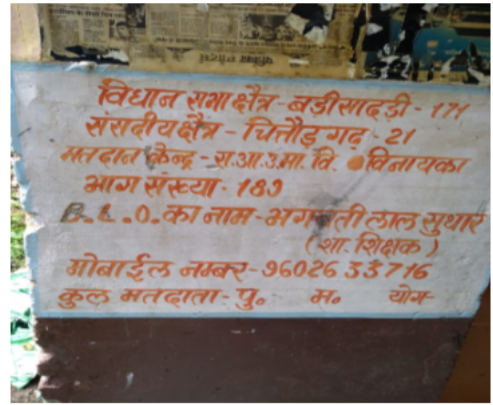 विधान सभा क्षैत्र - बड़ीसादड़ी - 171
संसदीय क्षैत्र - चित्तौड़ गढ़ - 21
मतदान केन्द्र - रा.आ.उ.मा. वि. विनायका
भाग संख्या - 189
B.L.O. का नाम - भगवती लाल सुथार
(शा. शिक्षक)
मोबाईल नम्बर - 9602633716
कुल मतदाता - पु. म. योग-